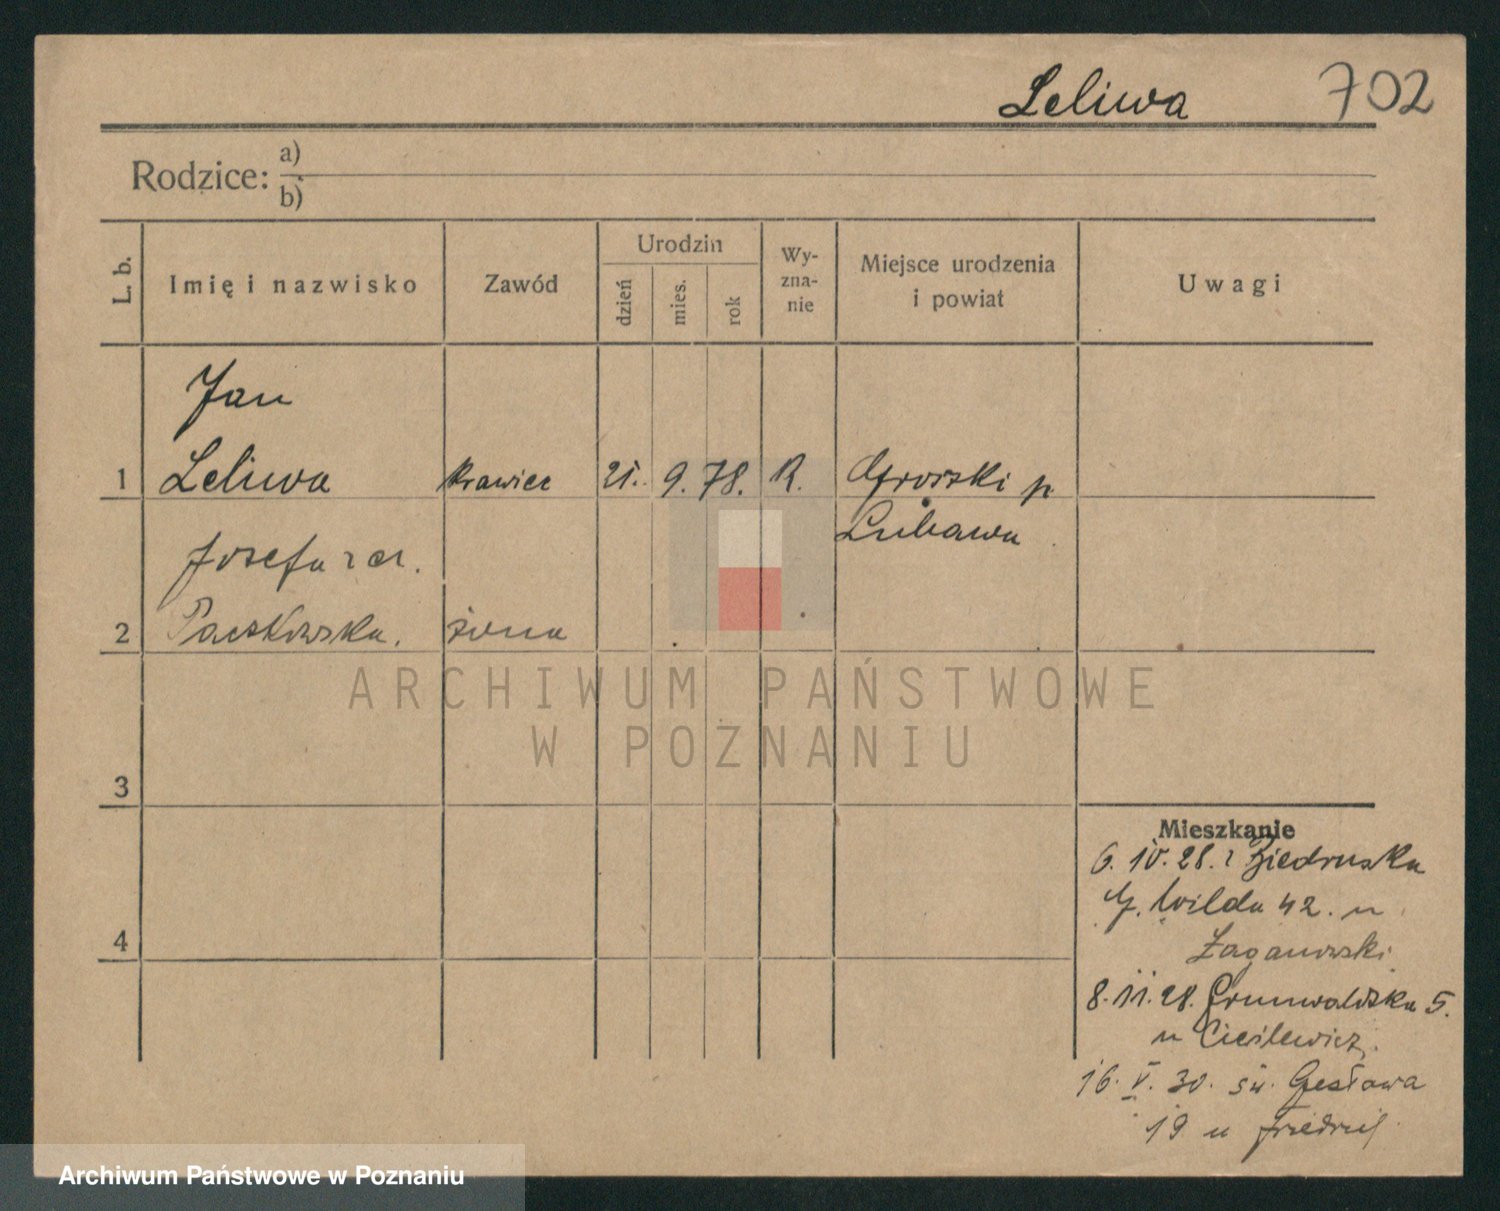 Leliwa 702
Rodzice: a)
b)
L. b.
Imię i nazwisko
Zawód
Urodzin
dzień
mies.
rok
Wy-
zna-
nie
Miejsce urodzenia
i powiat
Uwagi
Jan
1 Leliwa krawiec 21. 9. 78. R. p.
Lubawa
Józefa z d.
2 Paczkowska. żona
3
4
Mieszkanie
6. IV. 28. z Biedruska
G. Wilda 42. u
Łaganowski
8. 11. 28. Grunwaldzka 5.
u Cieślewicz.
16. V. 30. św. Czesława
19 u
ARCHIWUM PAŃSTWOWE
W POZNANIU
Archiwum Państwowe w Poznaniu